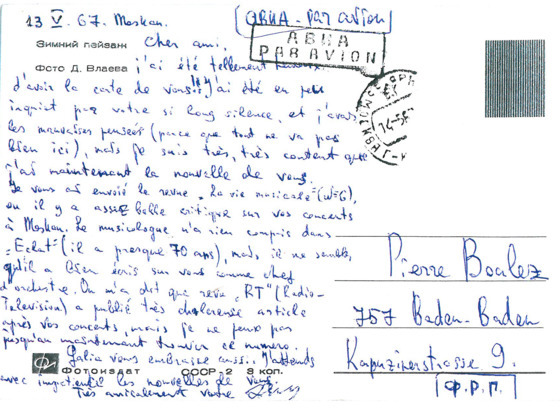 13 V. 67. Moskou.
(АВИА - par avion)
АВИА
PAR AVION
Зимний пейзаж
Фото Д. Влаева
Cher ami,
j'ai été tellement
d'avoir la carte de vous!!! j'ai été en peu
inquiet par votre si long silence, et j'avais
les mauvaises pensées (parce que tout ne va pas
bien ici), mais je suis très, très content que
j'ai maintenant la nouvelle de vous.
Je vous ai envoié la revue „La vie musicale" (N=6),
ou il y a assez belle critique sur vos concerts
à Moskou. Le musicologue n'a rien compris dans
„Eclat" (il a presque 70 ans), mais il me semble,
qu'il a bien écris sur vous comme chef
d'orchestre. On m'a dit que revu „RT" (Radio-
Television) a publié très chaleureuse article
après vos concerts, mais je ne peux pas
jusqu'au maintenant trouver ce numero.
Galia vous embrasse aussi. J'attends
avec impatience les nouvelles de vous.
Très amicalement votre
Фотоиздат СССР-2 3 коп.
Pierre Boulez
757 Baden-Baden
Kapuzinerstrasse 9.
Ф.Р.Г.